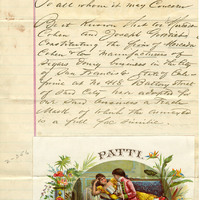 To all whom it may Concern
Be it Known that we
Cohen and Joseph
Constituting the firm of
Cohen & Co manufacturers of
Cigars doing business in the
City of San Francisco State of Cal-
ifornia at No 418 Battery St
of said City have adopted for
our said business a Trade
Mark of which the annexed
is a full fac simile.
PATTI.